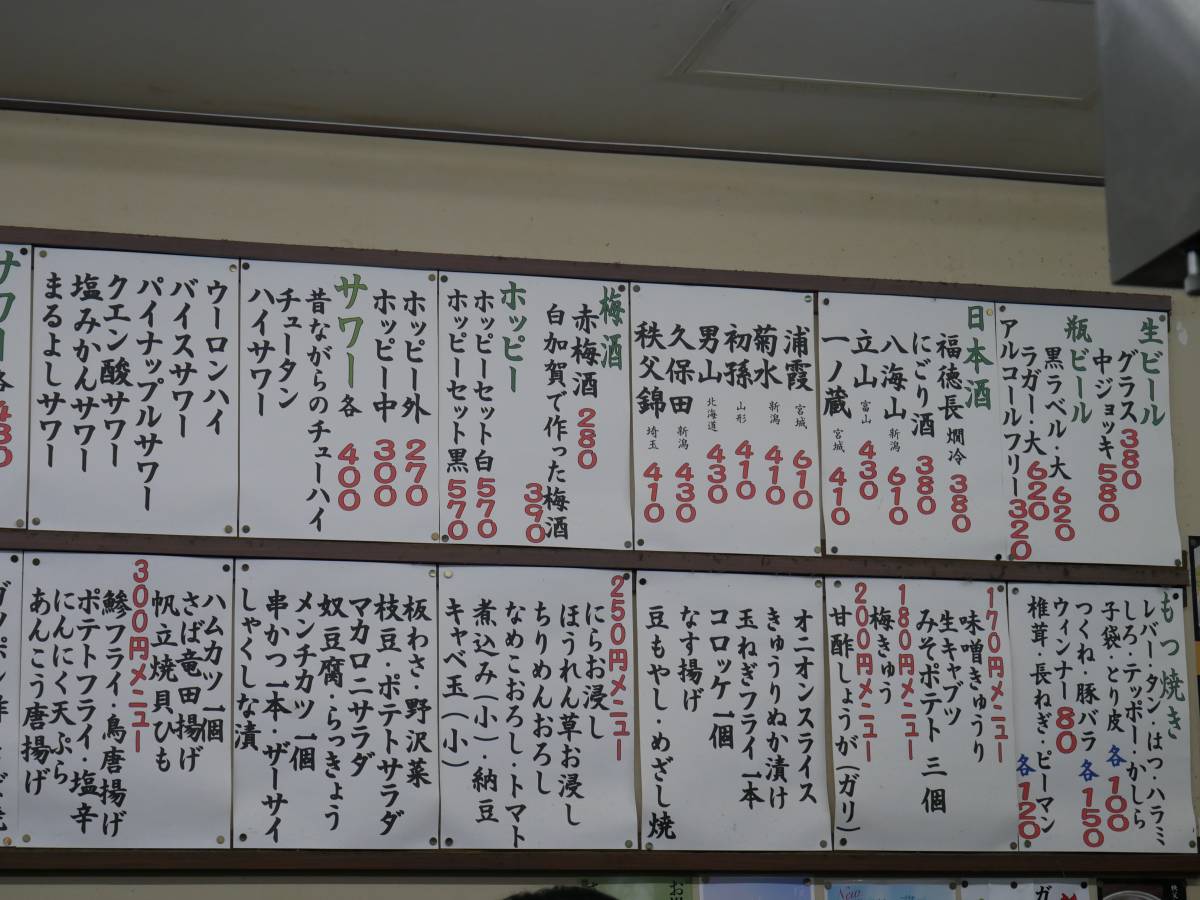 生ビール
グラス380
中ジョッキ580
瓶ビール
黒ラベル・大620
ラガー・大620
アルコールフリー320
日本酒
福徳長 燗冷 380
にごり酒 380
八海山 新潟 610
立山 富山 430
一ノ蔵 宮城 410
浦霞 宮城 610
菊水 新潟 410
初孫 山形 410
男山 北海道 430
久保田 新潟 430
秩父錦 埼玉 410
梅酒
赤梅酒 280
白加賀で作った梅酒 390
ホッピー
ホッピーセット白570
ホッピーセット黒570
ホッピー外 270
ホッピー中 300
サワー各 400
昔ながらのチューハイ
チュータン
ハイサワー
ウーロンハイ
バイスサワー
パイナップルサワー
クエン酸サワー
塩みかんサワー
まるよしサワー
サワー各 430
もつ焼き
レバー・タン・はつ・ハラミ
しろ・テッポー・かしら
子袋・とり皮 各100
つくね・豚バラ 各150
ウィンナー80
椎茸・長ねぎ・ピーマン
各120
170円メニュー
味噌きゅうり
生キャブツ
みそポテト 三個
180円メニュー
梅きゅう
200円メニュー
甘酢しょうが(ガリ)
オニオンスライス
きゅうりぬか漬け
玉ねぎフライ一本
コロッケ一個
なす揚げ
豆もやし・めざし焼
250円メニュー
にらお浸し
ほうれん草お浸し
ちりめんおろし
なめこおろし・トマト
煮込み(小)・納豆
キャベ玉(小)
板わさ・野沢菜
枝豆・ポテトサラダ
マカロニサラダ
奴豆腐・らっきょう
メンチカツ一個
串かつ一本・ザーサイ
しゃくしな漬
ハムカツ一個
さば竜田揚げ
帆立焼貝ひも
300円メニュー
鯵フライ・鳥唐揚げ
ポテトフライ・塩辛
にんにく天ぷら
あんこう唐揚げ